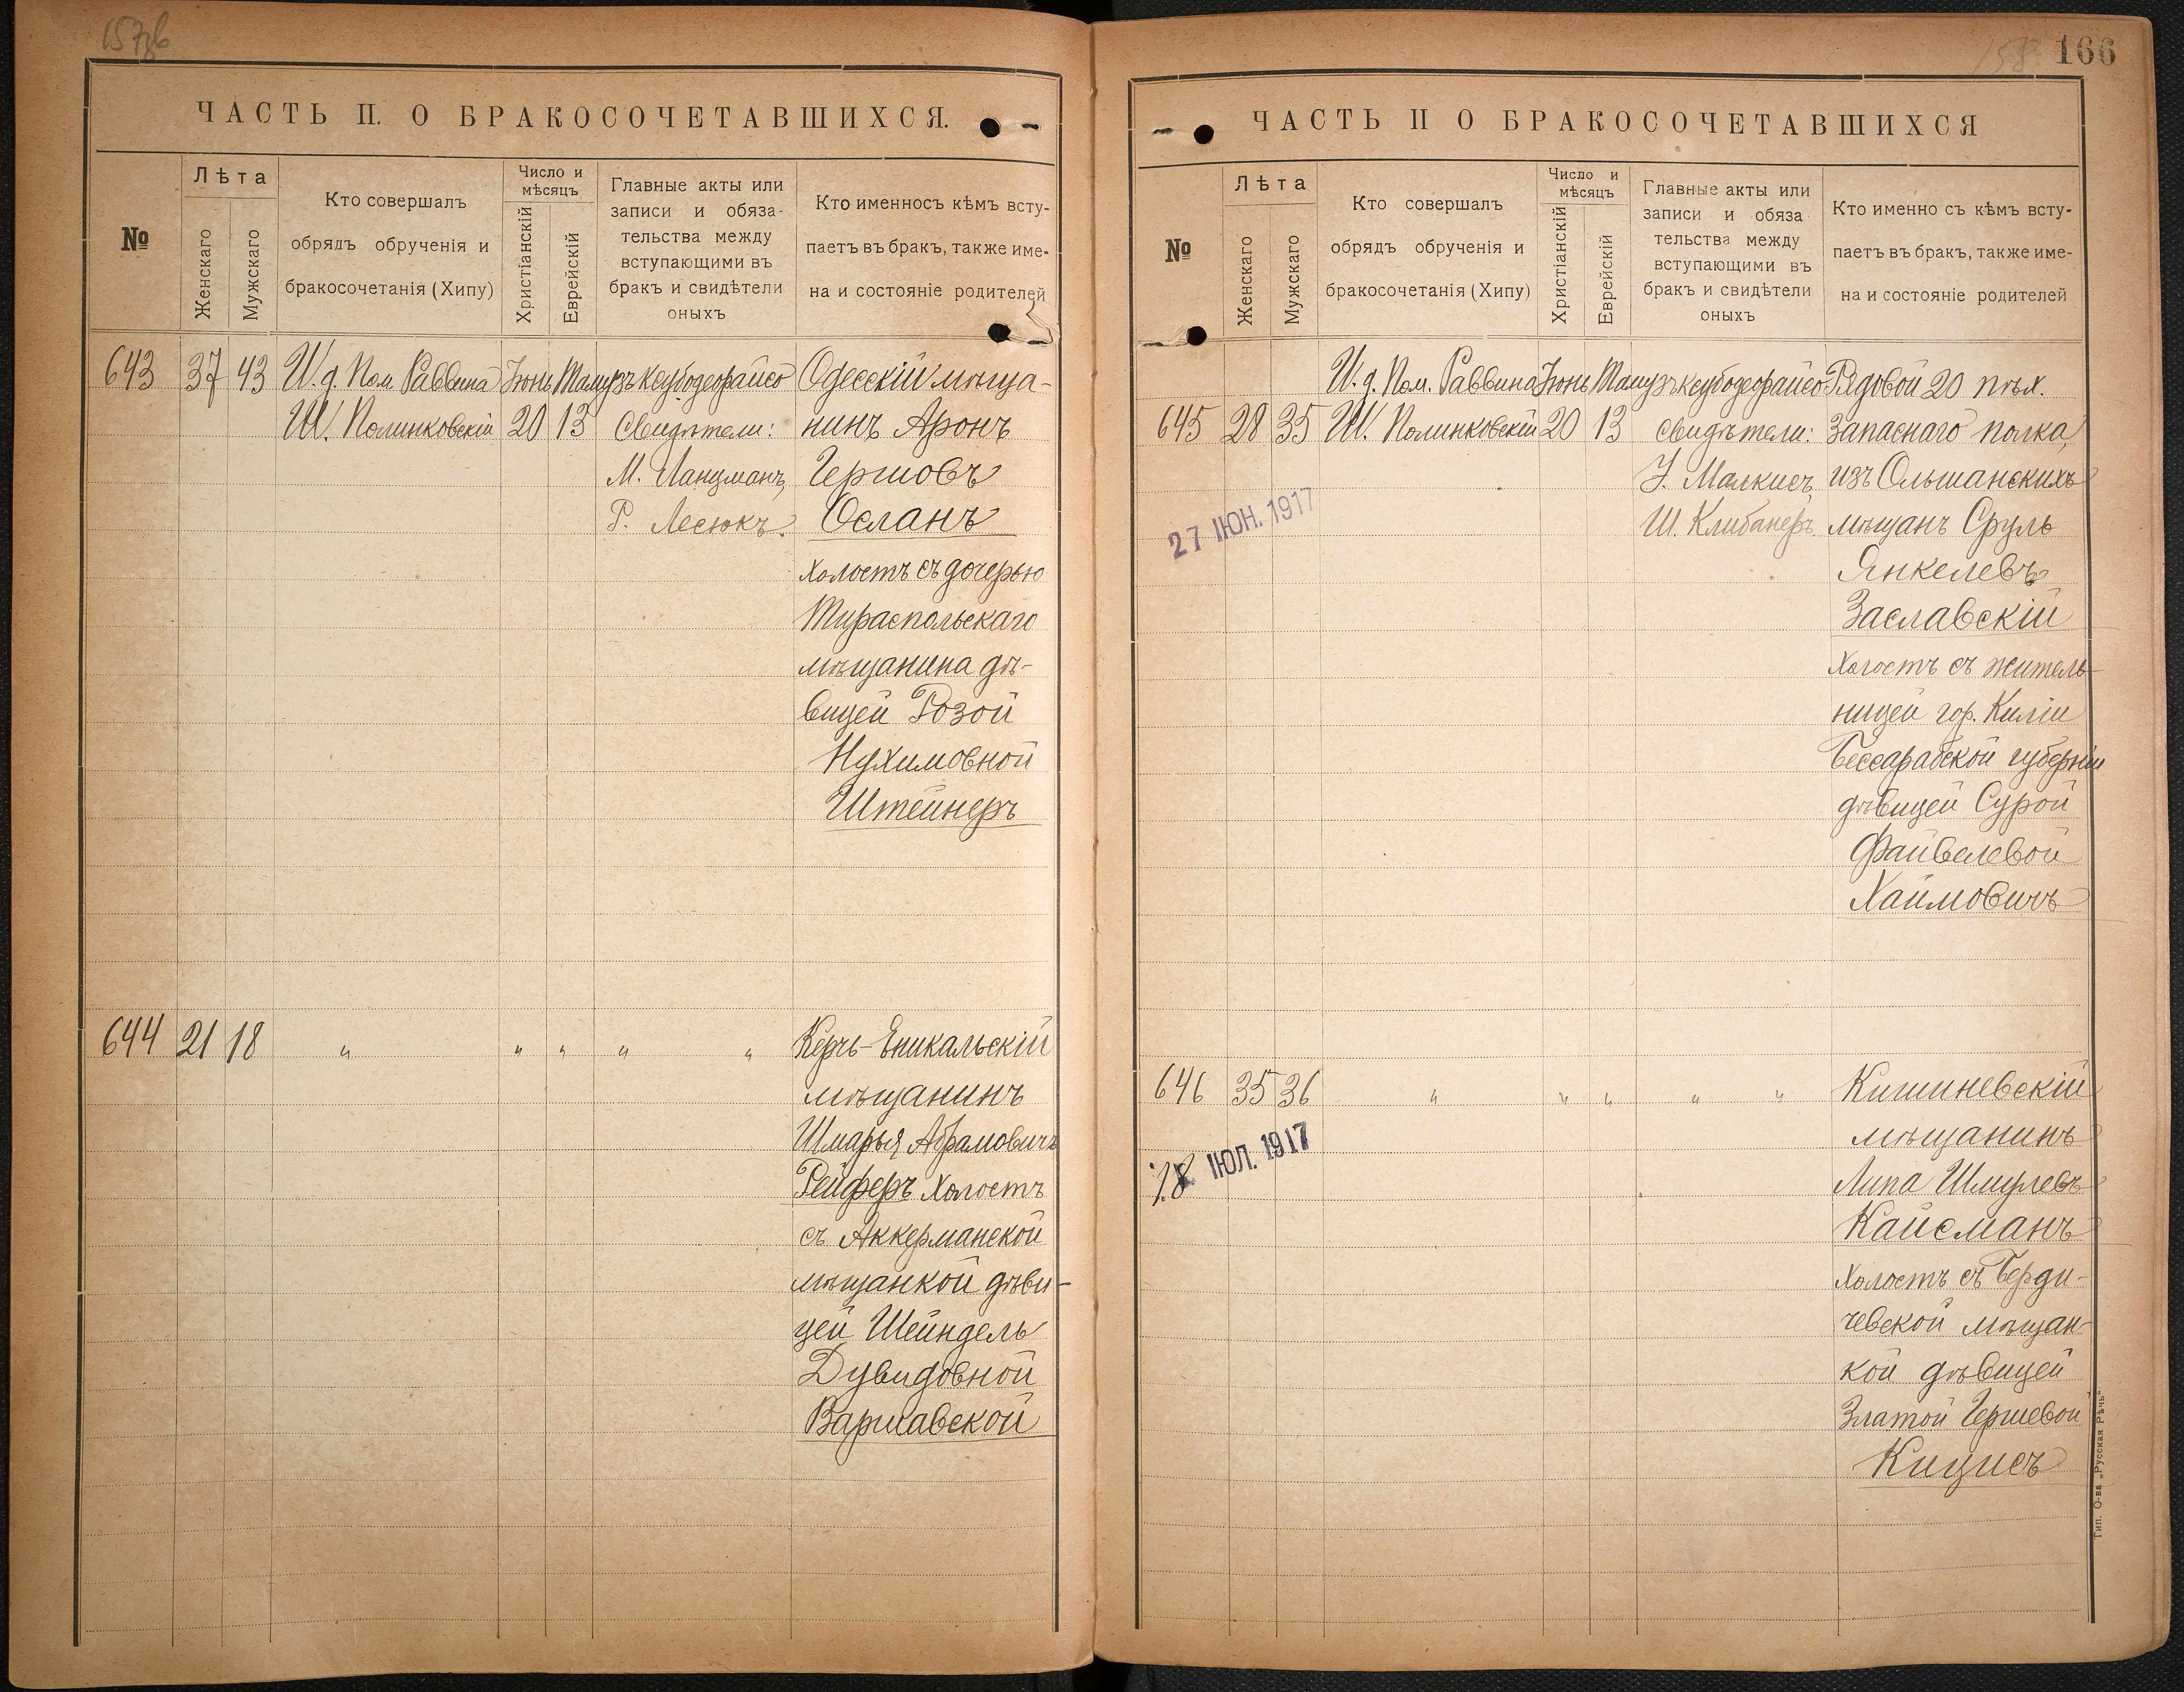 157об
ЧАСТЬ II. О БРАКОСОЧЕТАВШИХСЯ.
№
Лѣта
Женскаго
Мужскаго
Кто совершалъ
обрядъ обрученія и
бракосочетанія (Хипу)
Число и
мѣсяцъ
Христіанскій
Еврейскій
Главные акты или
записи и обяза-
тельства между
вступающими въ
бракъ и свидѣтели
оныхъ
Кто именносъ кѣмъ всту-
паетъ въ бракъ, также име-
на и состояніе родителей
643 37 43 И. д. Пом. Раввина Іюнь Тамузъ ксубодеорайсо Одесскій мѣща-
Ш. Полинковскій 20 13 Свидѣтели: нинъ Аронъ
М. Ланцманъ, Гершовъ
Р. Лесюкъ. Осланъ
холостъ съ дочерью
Тираспольскаго
мѣщанина дѣ-
вицей Розой
Нухимовной
Штейнеръ
644 21 18 " " " " " Керчь-Еникальскій
мѣщанинъ
Шмарья Абрамовичъ
Рейферъ холостъ
съ Аккерманской
мѣщанкой дѣви-
цей Шейндель
Дувидовной
Варшавской
166
ЧАСТЬ II О БРАКОСОЧЕТАВШИХСЯ
№
Лѣта
Женскаго
Мужскаго
Кто совершалъ
обрядъ обрученія и
бракосочетанія (Хипу)
Число и
мѣсяцъ
Христіанскій
Еврейскій
Главные акты или
записи и обяза
тельства между
вступающими въ
бракъ и свидѣтели
оныхъ
Кто именно съ кѣмъ всту-
паетъ въ бракъ, также име-
на и состояніе родителей
И. д. Пом. Раввина Іюнь Тамузъ ксубодеорайсо Рядовой 20 пѣх.
645 28 35 Ш. Полинковскій 20 13 Свидѣтели: запаснаго полка,
У. Малкисъ изъ Ольшанскихъ
27 ІЮН. 1917 Ш. Клибанеръ мѣщанъ Сруль
Янкелевъ
Заславскій
холостъ съ житель-
ницей гор. Киліи
Бессарабской губерніи
дѣвицей Сурой
Файвелевой
Хаймовичъ
646 35 36 " " " " " Кишиневскій
мѣщанинъ
18 ІЮЛ. 1917 Липа Шмулевъ
Кайсманъ
холостъ съ Берди-
чевской мѣщан-
кой дѣвицей
Златой Гершевой
Кицисъ
Тип. О-ва „Русская Рѣчь"